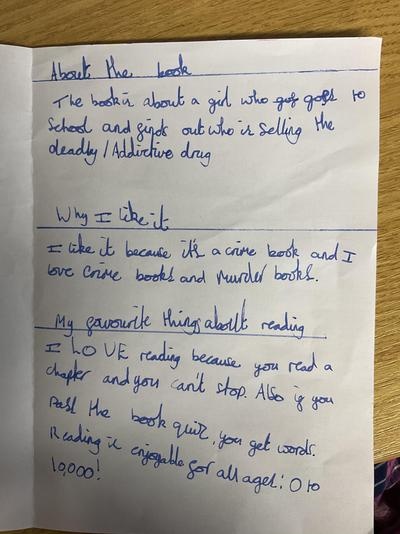 About the book
The book is about a girl who gos goes to
School and finds out who is selling the
deadly / Addictive drug
Why I like it
I like it because it's a crime book and I
love crime books and murder books.
My favourite things about reading
I LOVE reading because you read a
chapter and you can't stop. Also if you
pass the book quiz, you get words.
Reading is enjoyable for all ages! 0 to
10,000!